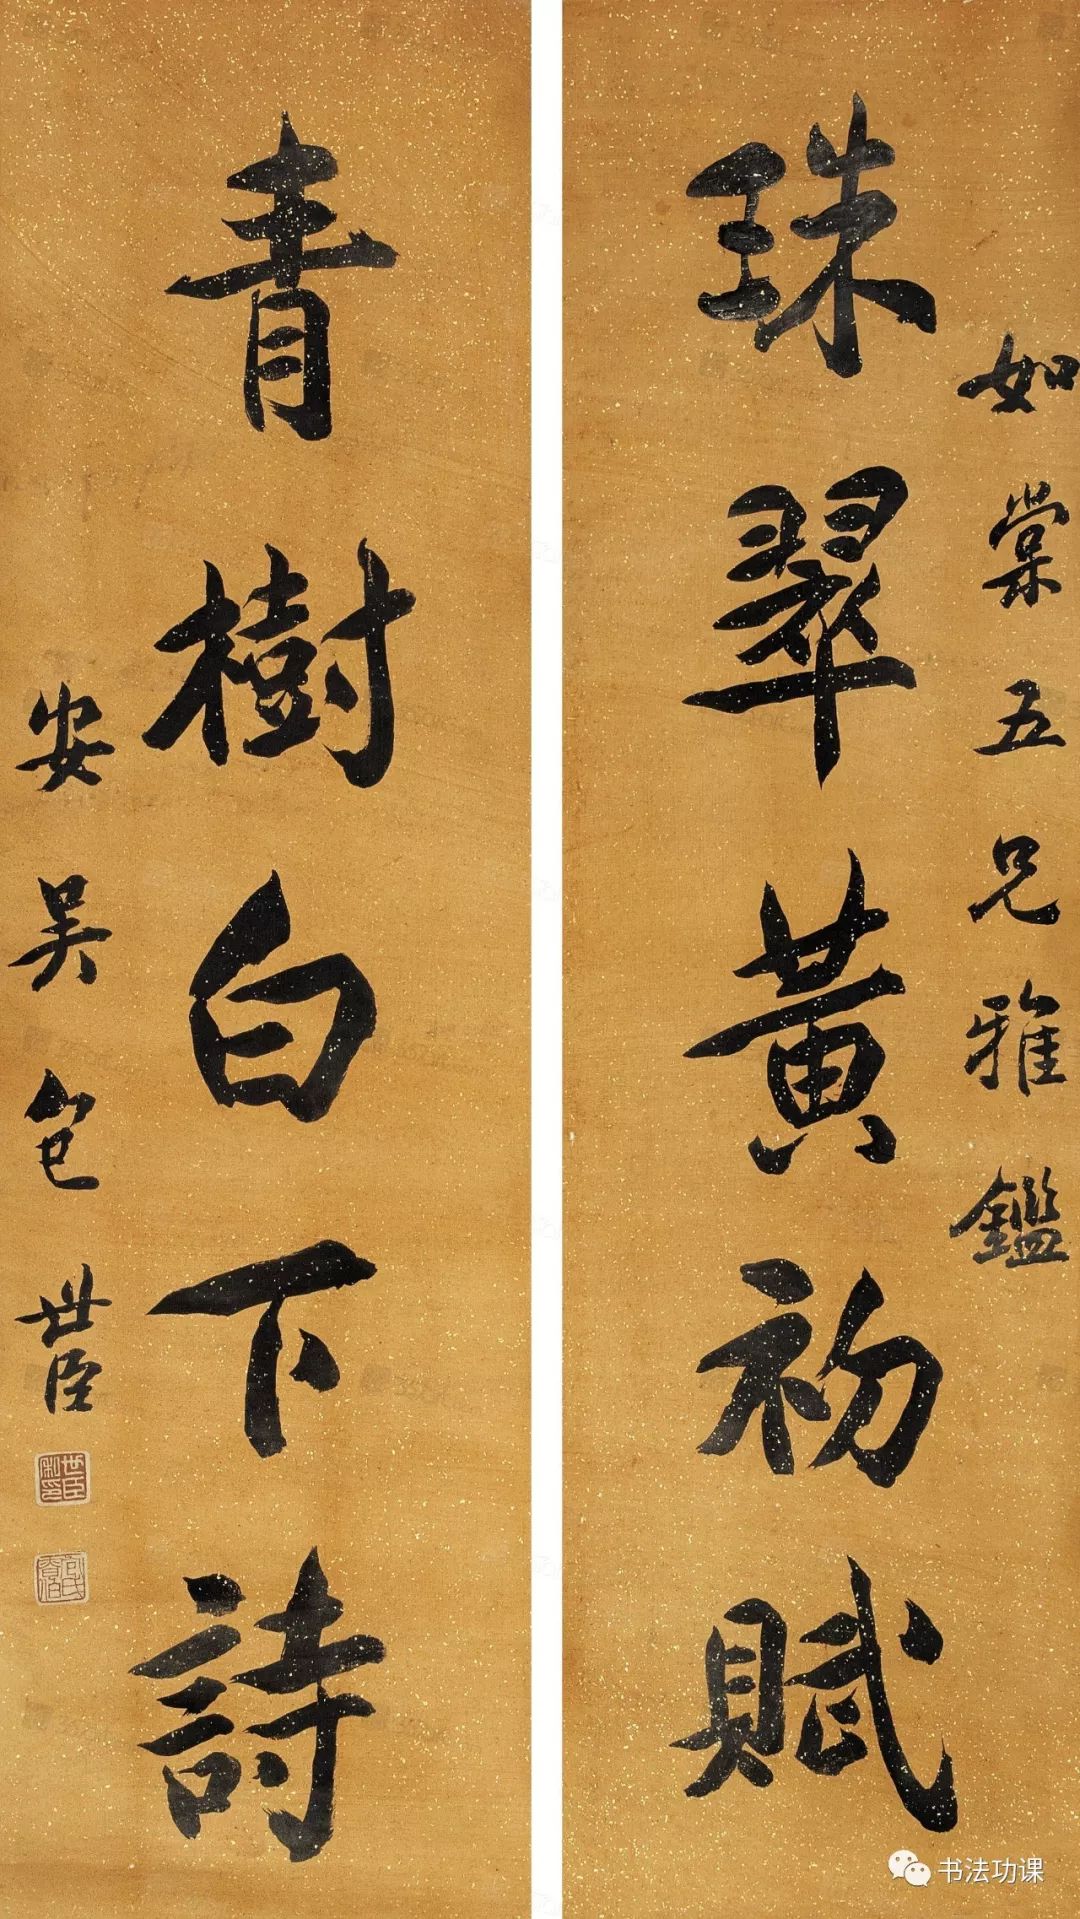 如棠五兄雅鑑
珠翠黃初賦
青樹白下詩
安吳包世臣
世臣私印
书法功课